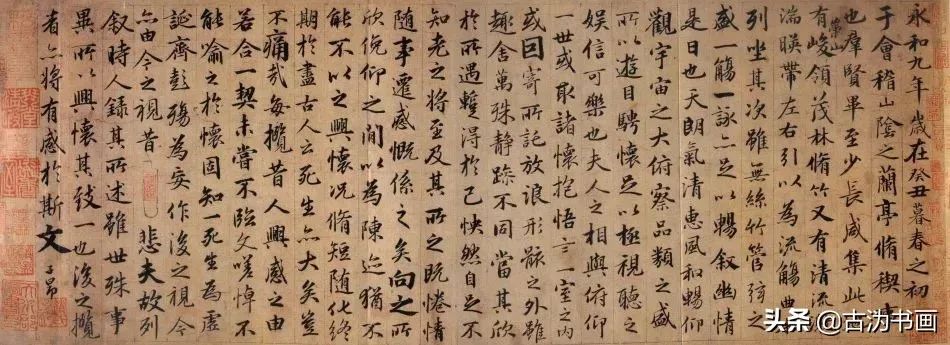 永和九年歲在癸丑暮春之初
于會稽山陰之蘭亭脩禊事
也羣賢畢至少長咸集此
有崇山峻領茂林脩竹又有清流
湍暎帶左右引以為流觴曲
列坐其次雖無絲竹管弦之
盛一觴一詠亦足以暢叙幽情
是日也天朗氣清惠風和暢仰
觀宇宙之大俯察品類之盛
所以遊目騁懷足以極視聽之
娛信可樂也夫人之相與俯仰
一世或取諸懷抱悟言一室之内
或因寄所託放浪形骸之外雖
趣舍萬殊静躁不同當其欣
於所遇蹔得於己怏然自足不
知老之將至及其所之既惓情
随事遷感慨係之矣向之所
欣俛仰之閒以為陳迹猶不
能不以之興懷况脩短随化終
期於盡古人云死生亦大矣豈
不痛哉每攬昔人興感之由
若合一契未嘗不臨文嗟悼不
能喻之於懷固知一死生為虛
誕齊彭殤為妄作後之視今
亦由今之視昔悲夫故列
叙時人録其所述雖世殊事
異所以興懷其致一也後之攬
者亦將有感於斯文子昂
头条@古沩书画